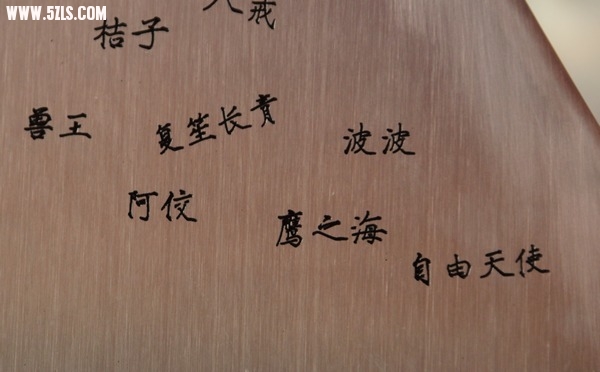 WWW.5ZLS.COM
八戒
桔子
兽王
复笙长青
波波
阿佼
鹰之海
自由天使